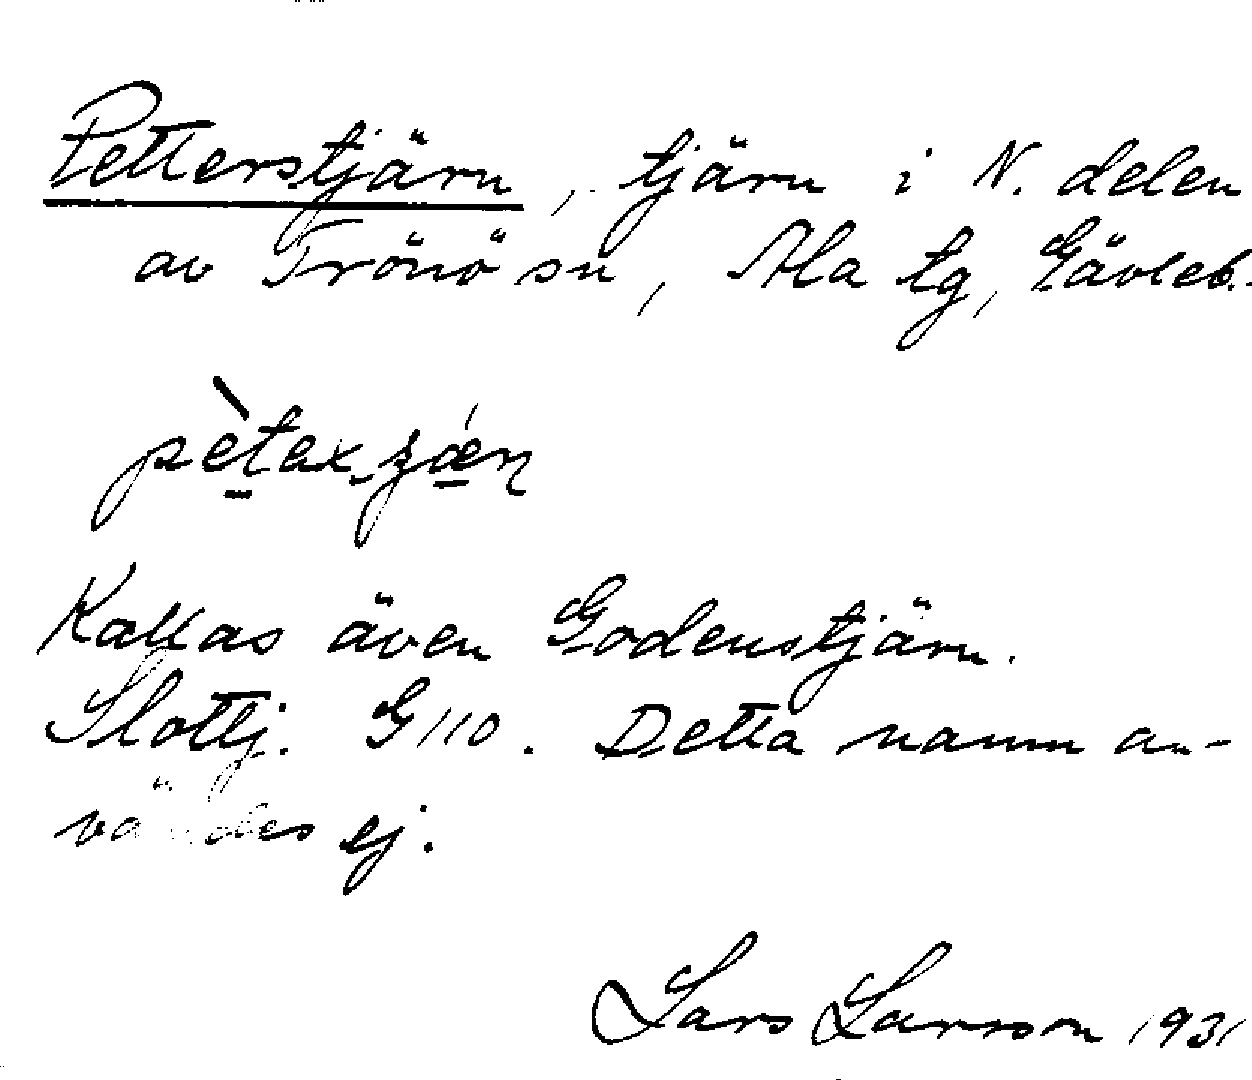 Petterstjärn, tjärn i N. delen
av Trönö sn, Ala tg, Gävleb.
Kallas även Godenstjärn.
Slottj. G 110. Detta namn an-
vändes ej.
Lars Larsson 1931